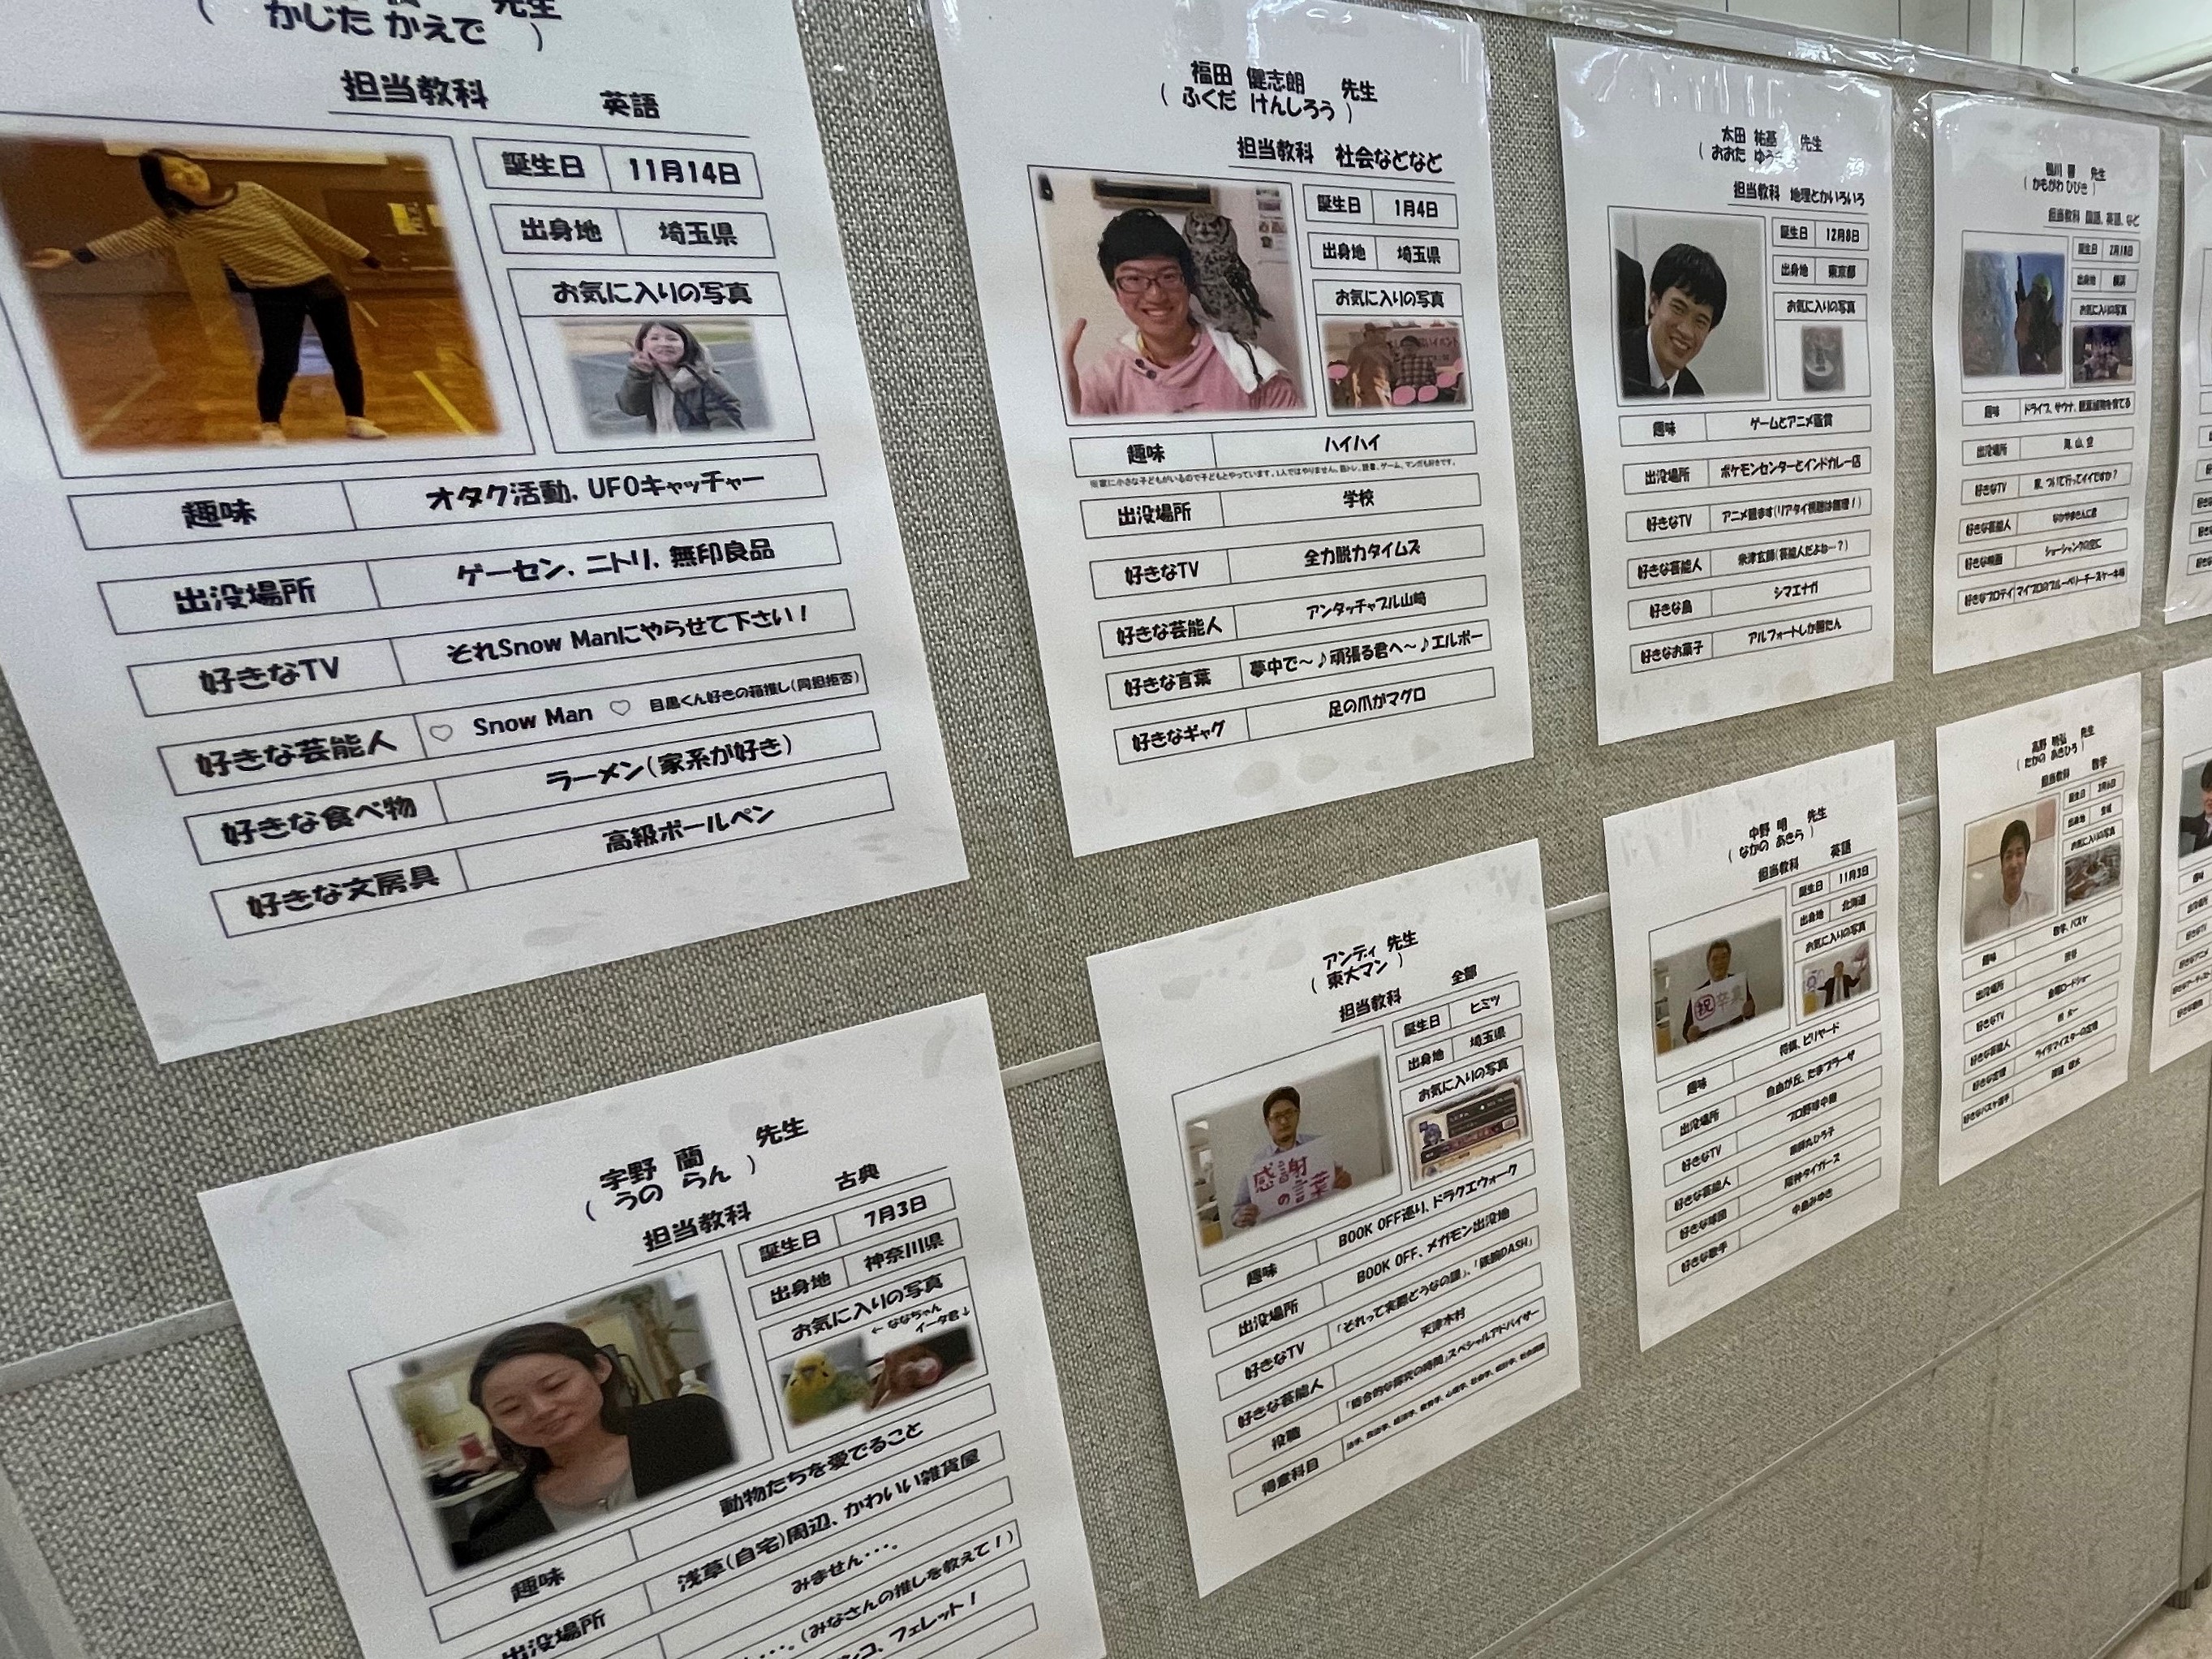 先生
( かじた かえで )
担当教科 英語
誕生日 11月14日
出身地 埼玉県
お気に入りの写真
趣味 オタク活動、UFOキャッチャー
出没場所 ゲーセン、ニトリ、無印良品
好きなTV それSnow Manにやらせて下さい!
好きな芸能人 ♡ Snow Man ♡ 目黒くん好きの箱推し(同担拒否)
好きな食べ物 ラーメン(家系が好き)
好きな文房具 高級ボールペン
福田 健志朗 先生
( ふくだ けんしろう )
担当教科 社会などなど
誕生日 1月4日
出身地 埼玉県
お気に入りの写真
趣味 ハイハイ
出没場所 学校
好きなTV 全力脱力タイムズ
好きな芸能人 アンタッチャブル山崎
好きな言葉 夢中で～♪頑張る君へ～♪エルボー
好きなギャグ 足の爪がマグロ
太田 祐基 先生
( おおた ゆう
担当教科 地理とかいろいろ
誕生日 12月8日
出身地 東京都
お気に入りの写真
趣味 ゲームとアニメ鑑賞
出没場所 ポケモンセンターとインドカレー店
好きなTV アニメ観ます(リアタイ視聴は無理!)
好きな芸能人 米津玄師(芸能人だよね…?)
好きな鳥 シマエナガ
好きなお菓子 アルフォートしか勝たん
鴨川 響 先生
( かもがわ ひびき )
担当教科 国語、英語、など
誕生日 2月18日
出身地 横浜
お気に入りの写真
趣味 ドライブ、サウナ、観葉植物を育てる
出没場所 海、山、空
好きなTV 家、ついて行ってイイですか?
好きな芸能人 なかやまきんに君
好きな映画 ショーシャンクの空に
好きなプロテイ マイプロのブルーベリーチーズケーキ味
宇野 蘭 先生
( うの らん )
担当教科 古典
誕生日 7月3日
出身地 神奈川県
お気に入りの写真
← ななちゃん
イータ君↓
趣味 動物たちを愛でること
出没場所 浅草(自宅)周辺、かわいい雑貨屋
みません・・・。
・・・。(みなさんの推しを教えて!)
ンコ、フェレット!
アンディ 先生
( 東大マン )
担当教科 全部
誕生日 ヒミツ
出身地 埼玉県
お気に入りの写真
感謝の言葉
趣味 BOOK OFF巡り、ドラクエウォーク
出没場所 BOOK OFF、メガモン出没地
好きなTV 「それって実際どうなの課」、「鉄腕DASH」
好きな芸能人 天津木村
役職 「総合的な探究の時間」スペシャルアドバイザー
得意科目
中野 明 先生
( なかの あきら )
担当教科 英語
誕生日 11月3日
出身地 北海道
お気に入りの写真
祝 卒業
趣味 将棋、ビリヤード
出没場所 自由が丘、たまプラーザ
好きなTV プロ野球中継
好きな芸能人 薬師丸ひろ子
好きな球団 阪神タイガース
好きな歌手 中島みゆき
先生
( たかの あきひろ )
担当教科 数学
誕生日 3月6日
出身地 茨城
お気に入りの写真
趣味 数学、バスケ
出没場所 渋谷
好きなTV 金曜ロードショー
好きな芸能人
好きな定理
好きなバスケ選手